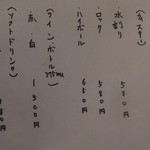 (ウィスキー)
・水割り 580円
・ロック 580円
・ハイボール 680円
(ワイン)ボトル 375ml
・赤・白 1500円
(ソフトドリンク)